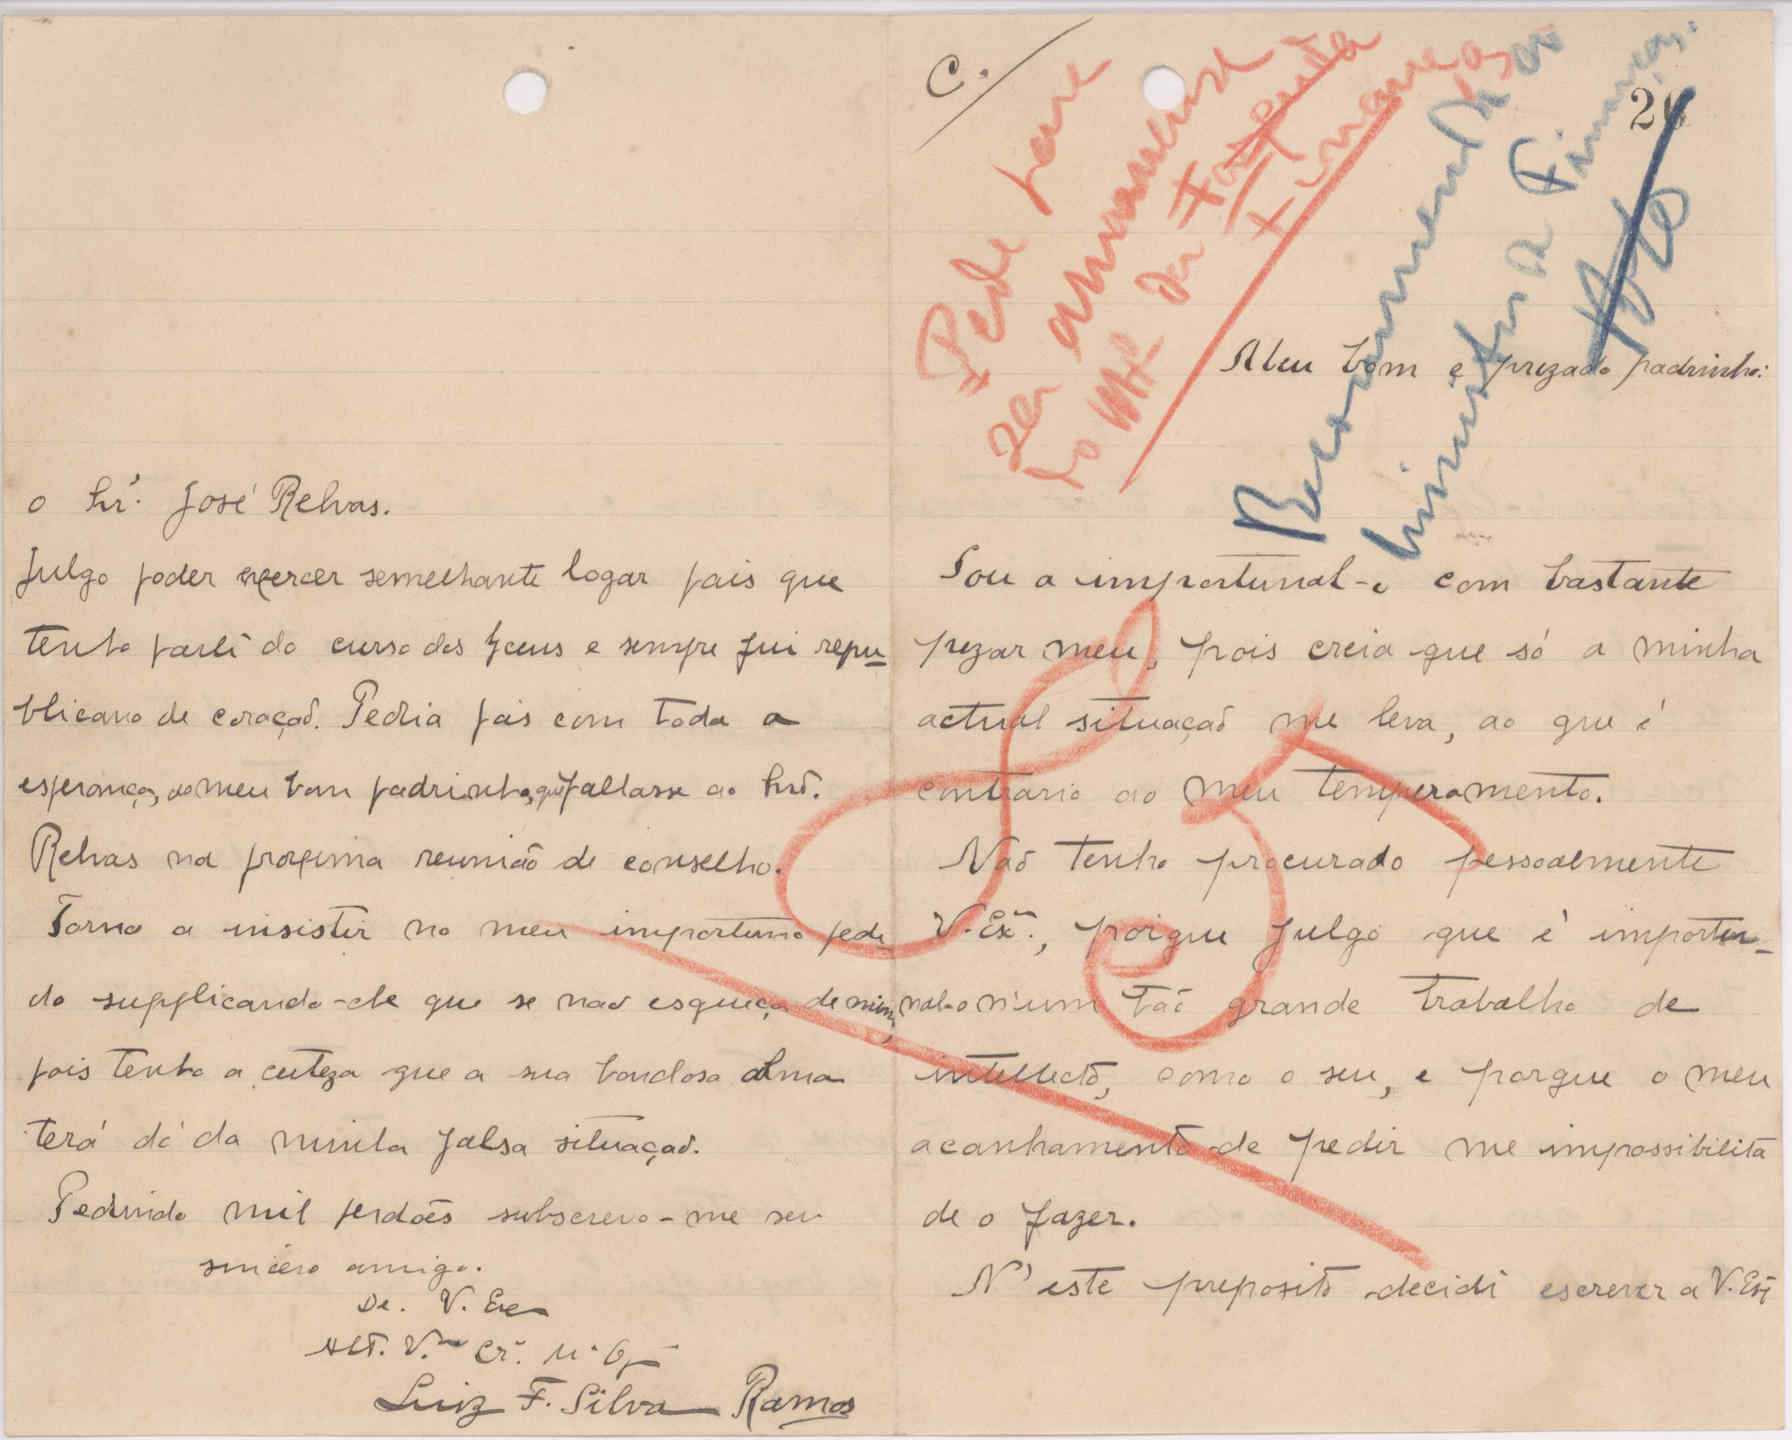 C.
Pede para
ser amanuense
do
da Fazenda
Finanças
Recommendado ao
Ministro a Finanças.
26
Meu bom e prezado padrinho:
Vou a importunal-o com bastante
pezar meu, pois creia que só a minha
actual situação me leva, ao que é
contrario ao meu temperamento.
Não tenho procurado pessoalmente
V. Exª., porque julgo que é importu-
nal-o n'um tão grande trabalho de
intellecto, como o seu, e porque o meu
acanhamento de pedir me impossibilita
de o fazer.
N'este preposito decidi escrever a V. Exª
85
o Snr. José Relvas.
Julgo poder exercer semelhante logar pois que
tenho parte do curso dos lyceus e sempre fui repu-
blicano de coração. Pedia pois com toda a
esperança, ao meu bom padrinho, que fallasse ao Snr.
Relvas na proxima reunião de conselho.
Torno a insistir no meu importuno pedi-
do supplicando-lhe que se não esqueça de mim,
pois tenho a certeza que a sua bondosa alma
terá dó da minha falsa situação.
Pedindo mil perdões subscrevo-me seu
sincero amigo.
De. V. Exa
Att. V.or Cr.º
Luiz F. Silva Ramos